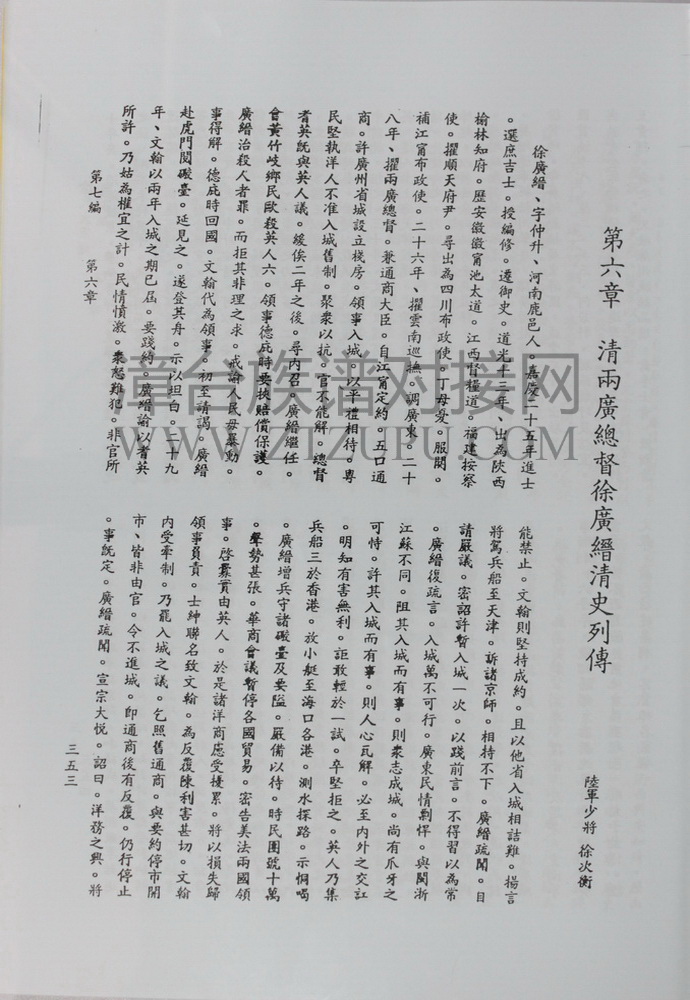 第六章　清兩廣總督徐廣縉清史列傳
陸軍少將　徐次衡
徐廣縉、字仲升、河南鹿邑人。嘉慶二十五年進士
。選庶吉士。授編修。遷御史。道光十三年、出為陝西
榆林知府。歷安徽徽甯池太道。江西督糧道。福建按察
使。擢順天府尹。尋出為四川布政使。丁母憂。服闋。
補江甯布政使。二十六年、擢雲南巡撫。調廣東。二十
八年、擢兩廣總督。兼通商大臣。自江甯定約。五口通
商。許廣州省城設立棧房。領事入城。以平禮相待。粵
民堅執洋人不准入城舊制。聚衆以抗。官不能解。總督
耆英旣與英人議。緩俟二年之後。尋內召。廣縉繼任。
會黃竹岐鄉民歐殺英人六。領事德庇時要挾賠償保護。
廣縉治殺人者罪。而拒其非理之求。戒諭人民毋暴動。
事得解。德庇時回國。文翰代為領事。初至請謁。廣縉
赴虎門閱礮臺。延見之。遂登其舟。示以坦白。二十九
年、文翰以兩年入城之期已屆。要踐約。廣縉諭以耆英
所許。乃姑為權宜之計。民情憤激。衆怒難犯。非官所
能禁止。文翰則堅持成約。且以他省入城相詰難。揚言
將駕兵船至天津。訴諸京師。相持不下。廣縉疏聞。自
請嚴議。密詔許暫入城一次。以踐前言。不得習以為常
。廣縉復疏言。入城萬不可行。廣東民情剽悍。與閩浙
江蘇不同。阻其入城而有事。則衆志成城。尚有爪牙之
可恃。許其入城而有事。則人心瓦解。必至內外之交訌
。明知有害無利。詎敢輕於一試。卒堅拒之。英人乃集
兵船三於香港。放小艇至海口各港。測水探路。示恫喝
。廣縉增兵守諸礮臺及要隘。嚴備以待。時民團號十萬
。聲勢甚張。華商會議暫停各國貿易。密告美法兩國領
事。啓釁實由英人。於是諸洋商應受擾累。將以損失歸
領事負責。士紳聯名致文翰。為反覆陳利害甚切。文翰
內受牽制。乃罷入城之議。乞照舊通商。與要約停市開
市、皆非由官。今不進城。卽通商後有反覆。仍行停止
。事旣定。廣縉疏聞。宣宗大悅。詔曰。洋務之興。將
第七編　第六章
三五三
章台族谱对接网
WWW.ZTZUPU.COM